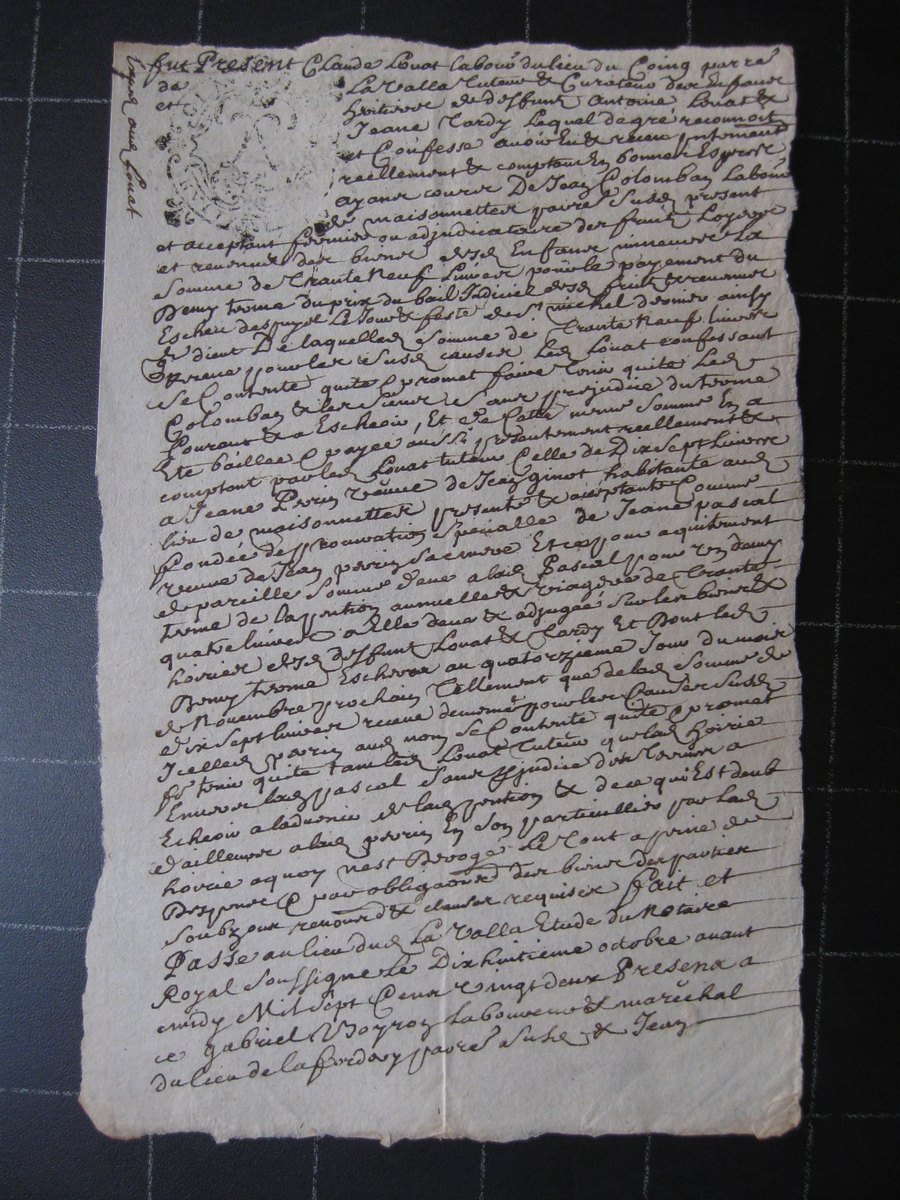 fut Present Claude Louat labour du lieu du Coing parre
de La Valla Tuteur & Curateur des enfans
et heritiers de deffunt Antoine Louat &
Jeane Tardy Lequel de gré reconnoit
et Confesse avoir Eu & receu
reellement & comptant En bonnes Especes
ayant cours De Jean Colomban Labour
de maisonnettes parre Susd present
et acceptant fermier ou adjudicataire des fruits Loyers
et revenus des biens desd Enfans mineurs La
somme de Trante Neuf Livres pour le payement du
Demy terme du prix du bail Judiciel desd fruits & revenus
Escheu despuis Le Jour & feste de St michel dernier ainsy
quil dient De laquelle Somme de Trante Neuf livres
receue pour les susd causes Led Louat confessant
se Contente quite & promet faire tenir quite Led
Colomban & les siens sans prejudice du terme
Courant & a Escheoir, Et de Cette meme Somme En a
Eté baillée & payée aussi presentement reellement &
comptant par led Louat tuteur Celle de Dix sept livres
a Jeane Perrin veuve de Jean ginot habitante aud
lieu de maisonnettes presente & acceptante Comme
fondée de procuration Specialle de Jeane pascal
veuve de Jean perrin sa mere Et ce pour aquitement
de pareille somme deue a lad Pascal pour un demy
terme de la pention annuelle & viagere de Trante
quatre livres a Elle deue & adjugée sur les biens &
hoirie desd deffunt Louat & Tardy Et Dont led
Demy terme Escherra au quatorzieme Jour du mois
de Novembre prochain Tellement que de lad Somme de
dix sept livres receue pour les Causes susd
Icelle perrin aud nom se Contente quite & promet
f tenir quite tant led Louat tuteur que lad hoirie
Envers lad pascal sans prejudice des termes a
Echeoir a ladvenir de lad pention & de ce qui Est deub
d'ailleurs a lad perrin En son particullier par lad
hoirie a quoy nest Derogé Le Tout a peine de
Despens & par obligaons des biens des parties
soubz pour renons & clauses requises Fait et
Passé au lieu dud La Valla Etude du Notaire
Royal soussigne Le Dix huitieme octobre avant
midy Mil sept Cent Vingt deux Presens a
ce gabriel Laboureur & maréchal
du lieu de parre Susd & Jean